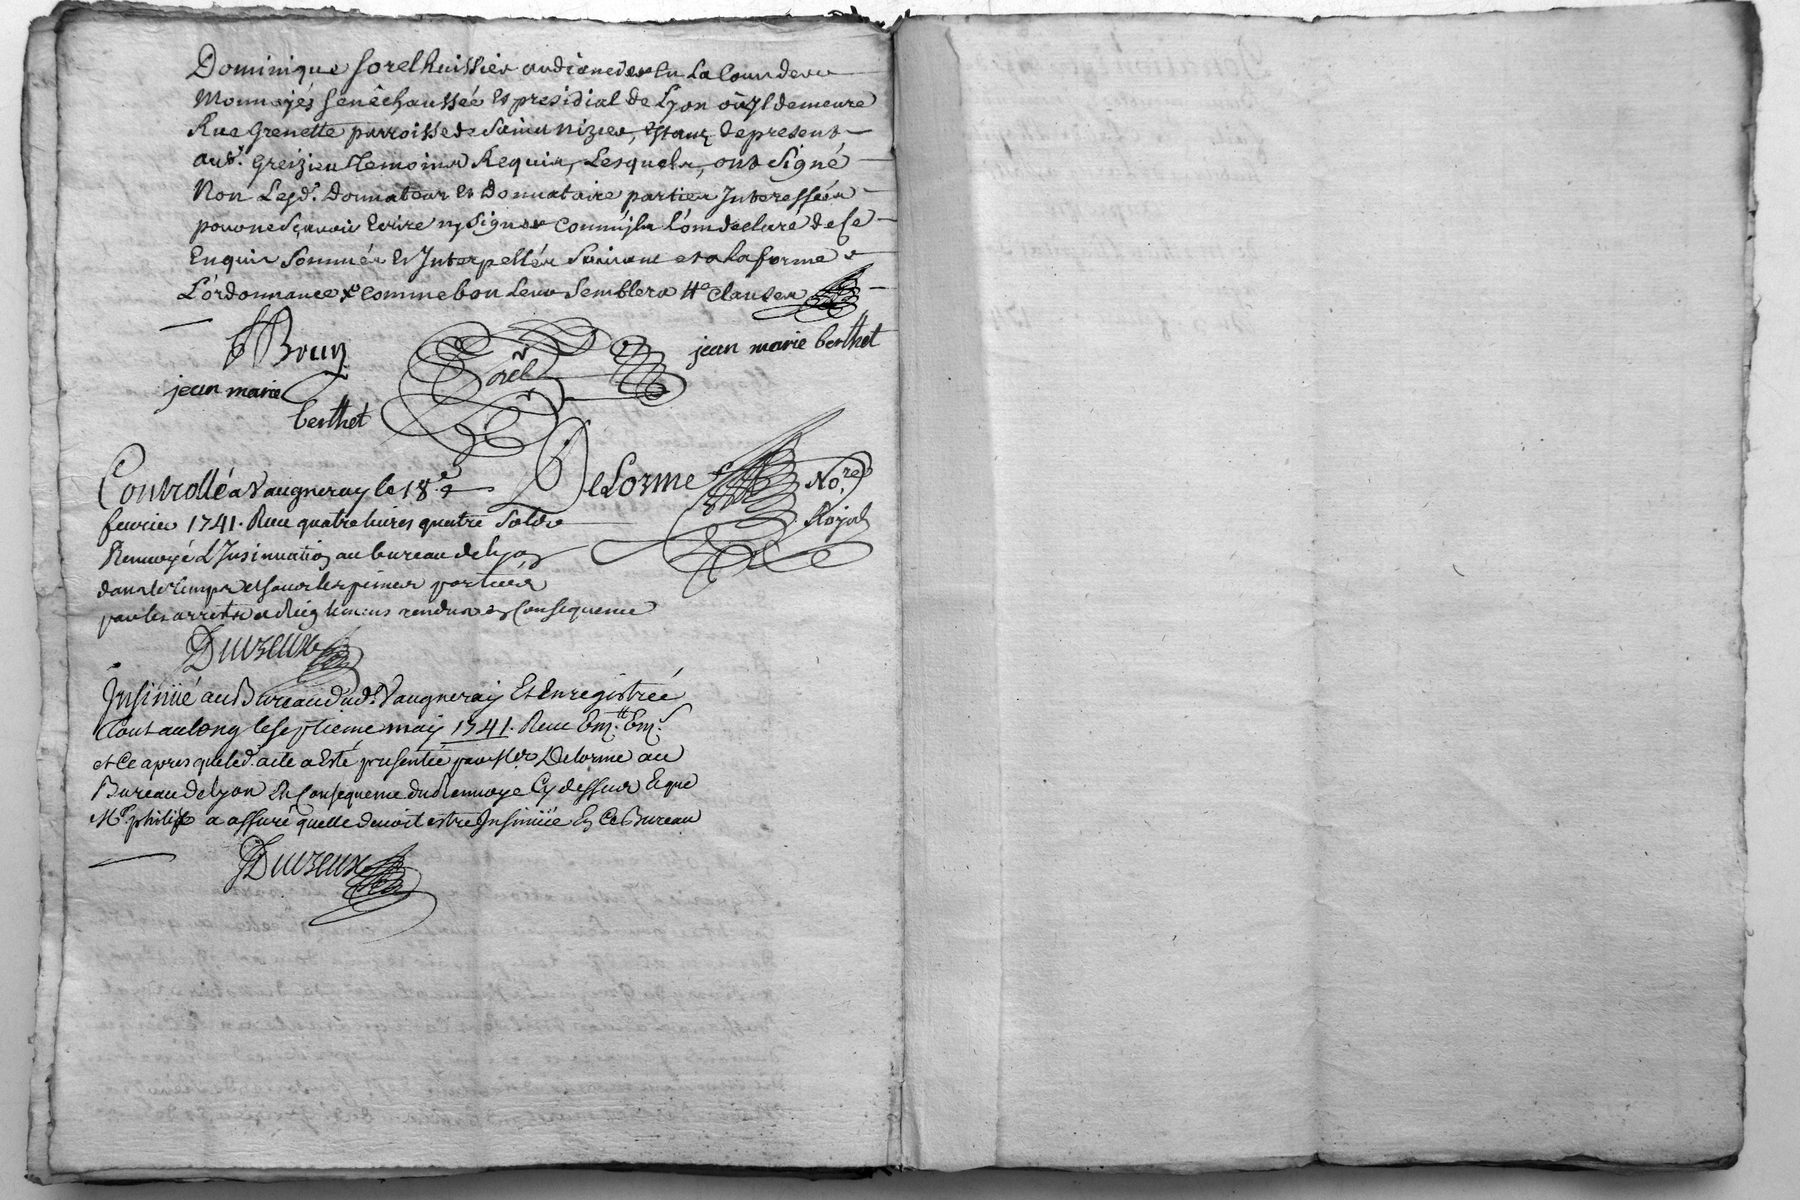 Dominique Sorel huissier audiancier En La Cour des
Monnoyes Senéchaussée et presidial de Lyon où yl demeure
Rue Grenette parroisse de Saint Nizier, Estant de present
aud.t Greizieu temoins Requis, Lesquels, ont Signé
Non Lesd.s Donnateur et Donnataire parties Interessées
pour ne Sçavoir Ecrire ny Signer Comm'jls L'ôm declaré de ce
Enquis Sommés et Interpellés Suivant et a la forme de
L'ordonnance x comme bon Leur Semblera tte clauses
Brun
jean marie berthet
Sorel
jean marie
berthet
DeLorme
No.re
Royal
Controllé a Vaugneray le 18.e
fevrier 1741. Receu quatre livres quatre Sols
Renvoyé L'Insinuation au bureau de lyon
dans le temps et sous les peines portées
par les arrets et Reiglemens rendus en Consequence
Duvzeux
Insinüé au Bureau dud.t Vaugneray Et Enregistrée
tout au long le septieme may 1741. Receu Em.tt Em.s
et ce apres que led. acte a Esté presentée par Me Delorme au
Bureau de lyon En Consequence du Renvoye Cy dessus Et que
Mr philip a assuré quelle devoit estre Insinüée En Ce Bureau
Duvzeux